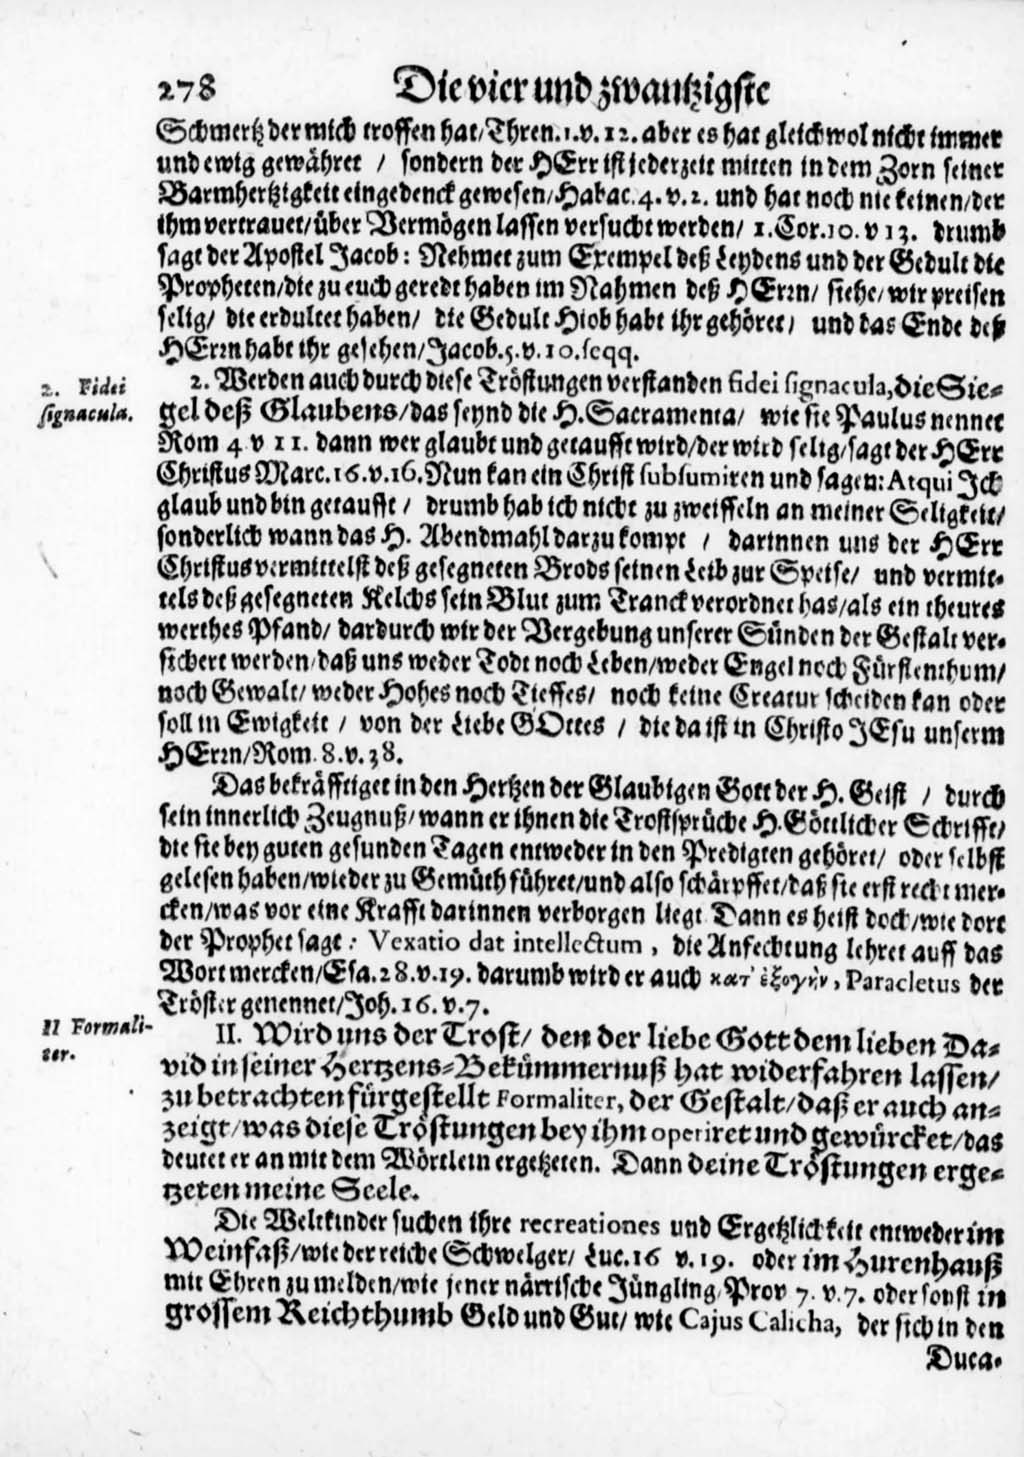 278 Die vier und zwantzigste
Schmertz der mich troffen hat/Thren.1.v.12. aber es hat gleichwol nicht immer
und ewig gewähret / sondern der HErr ist jederzeit mitten in dem Zorn seiner
Barmhertzigkeit eingedenck gewesen/Habac.4.v.2. und hat noch nie keinen/der
ihm vertrauet/über Vermögen lassen versucht werden/ 1.Cor.10.v 13. drumb
sagt der Apostel Jacob: Nehmet zum Exempel deß Leydens und der Gedult die
Propheten/die zu euch geredt haben im Nahmen deß HErrn/ siehe/wir preisen
selig/ die erdultet haben/ die Gedult Hiob habt ihr gehöret/ und das Ende deß
HErrn habt ihr gesehen/Jacob.5.v.10.seqq.
2. Fidei
signacula.
2. Werden auch durch diese Tröstungen verstanden fidei signacula, die Sie-
gel deß Glaubens/das seynd die H.Sacramenta/ wie sie Paulus nennet
Rom 4 v 11. dann wer glaubt und getaufft wird/der wird selig/sagt der HErr
Christus Marc.16.v.16.Nun kan ein Christ subsumiren und sagen: Atqui Jch
glaub und bin getaufft / drumb hab ich nicht zu zweiffeln an meiner Seligkeit/
sonderlich wann das H. Abendmahl darzu kompt / darinnen uns der HErr
Christus vermittelst deß gesegneten Brods seinen Leib zur Speise/ und vermit-
tels deß gesegneten Kelchs sein Blut zum Tranck verordnet has/als ein theures
werthes Pfand/ dardurch wir der Vergebung unserer Sünden der Gestalt ver-
sichert werden/daß uns weder Todt noch Leben/weder Engel noch Fürstenthum/
noch Gewalt/ weder Hohes noch Tieffes/ noch keine Creatur scheiden kan oder
soll in Ewigkeit / von der Liebe GOttes / die da ist in Christo JEsu unserm
HErrn/Rom.8.v.38.
Das bekräfftiget in den Hertzen der Glaubigen Gott der H. Geist / durch
sein innerlich Zeugnuß/wann er ihnen die Trostsprüche H.Göttlicher Schrifft/
die sie bey guten gesunden Tagen entweder in den Predigten gehöret/ oder selbst
gelesen haben/wieder zu Gemüth führet/und also schärpffet/daß sie erst recht mer-
cken/was vor eine Krafft darinnen verborgen liegt. Dann es heist doch/wie dort
der Prophet sagt: Vexatio dat intellectum, die Anfechtung lehret auff das
Wort mercken/Esa.28.v.19. darumb wird er auch κατ' ἐξοχὴν, Paracletus der
Tröster genennet/Joh.16.v.7.
II Formali-
ter.
II. Wird uns der Trost/ den der liebe Gott dem lieben Da-
vid in seiner Hertzens-Bekümmernuß hat widerfahren lassen/
zu betrachten fürgestellt Formaliter, der Gestalt/daß er auch an-
zeigt/was diese Tröstungen bey ihm operiret und gewürcket/das
deutet er an mit dem Wörtlein ergetzeten. Dann deine Tröstungen erge-
tzeten meine Seele.
Die Weltkinder suchen ihre recreationes und Ergetzlichkeit entweder im
Weinfaß/wie der reiche Schwelger/ Luc.16 v.19. oder im Hurenhauß
mit Ehren zu melden/wie jener närrische Jüngling/Prov 7.v.7. oder sonst in
grossem Reichthumb Geld und Gut/ wie Cajus Calicha, der sich in den
Duca-